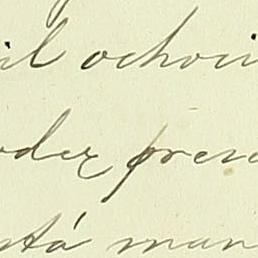 il ochoci
oder pren
stá man